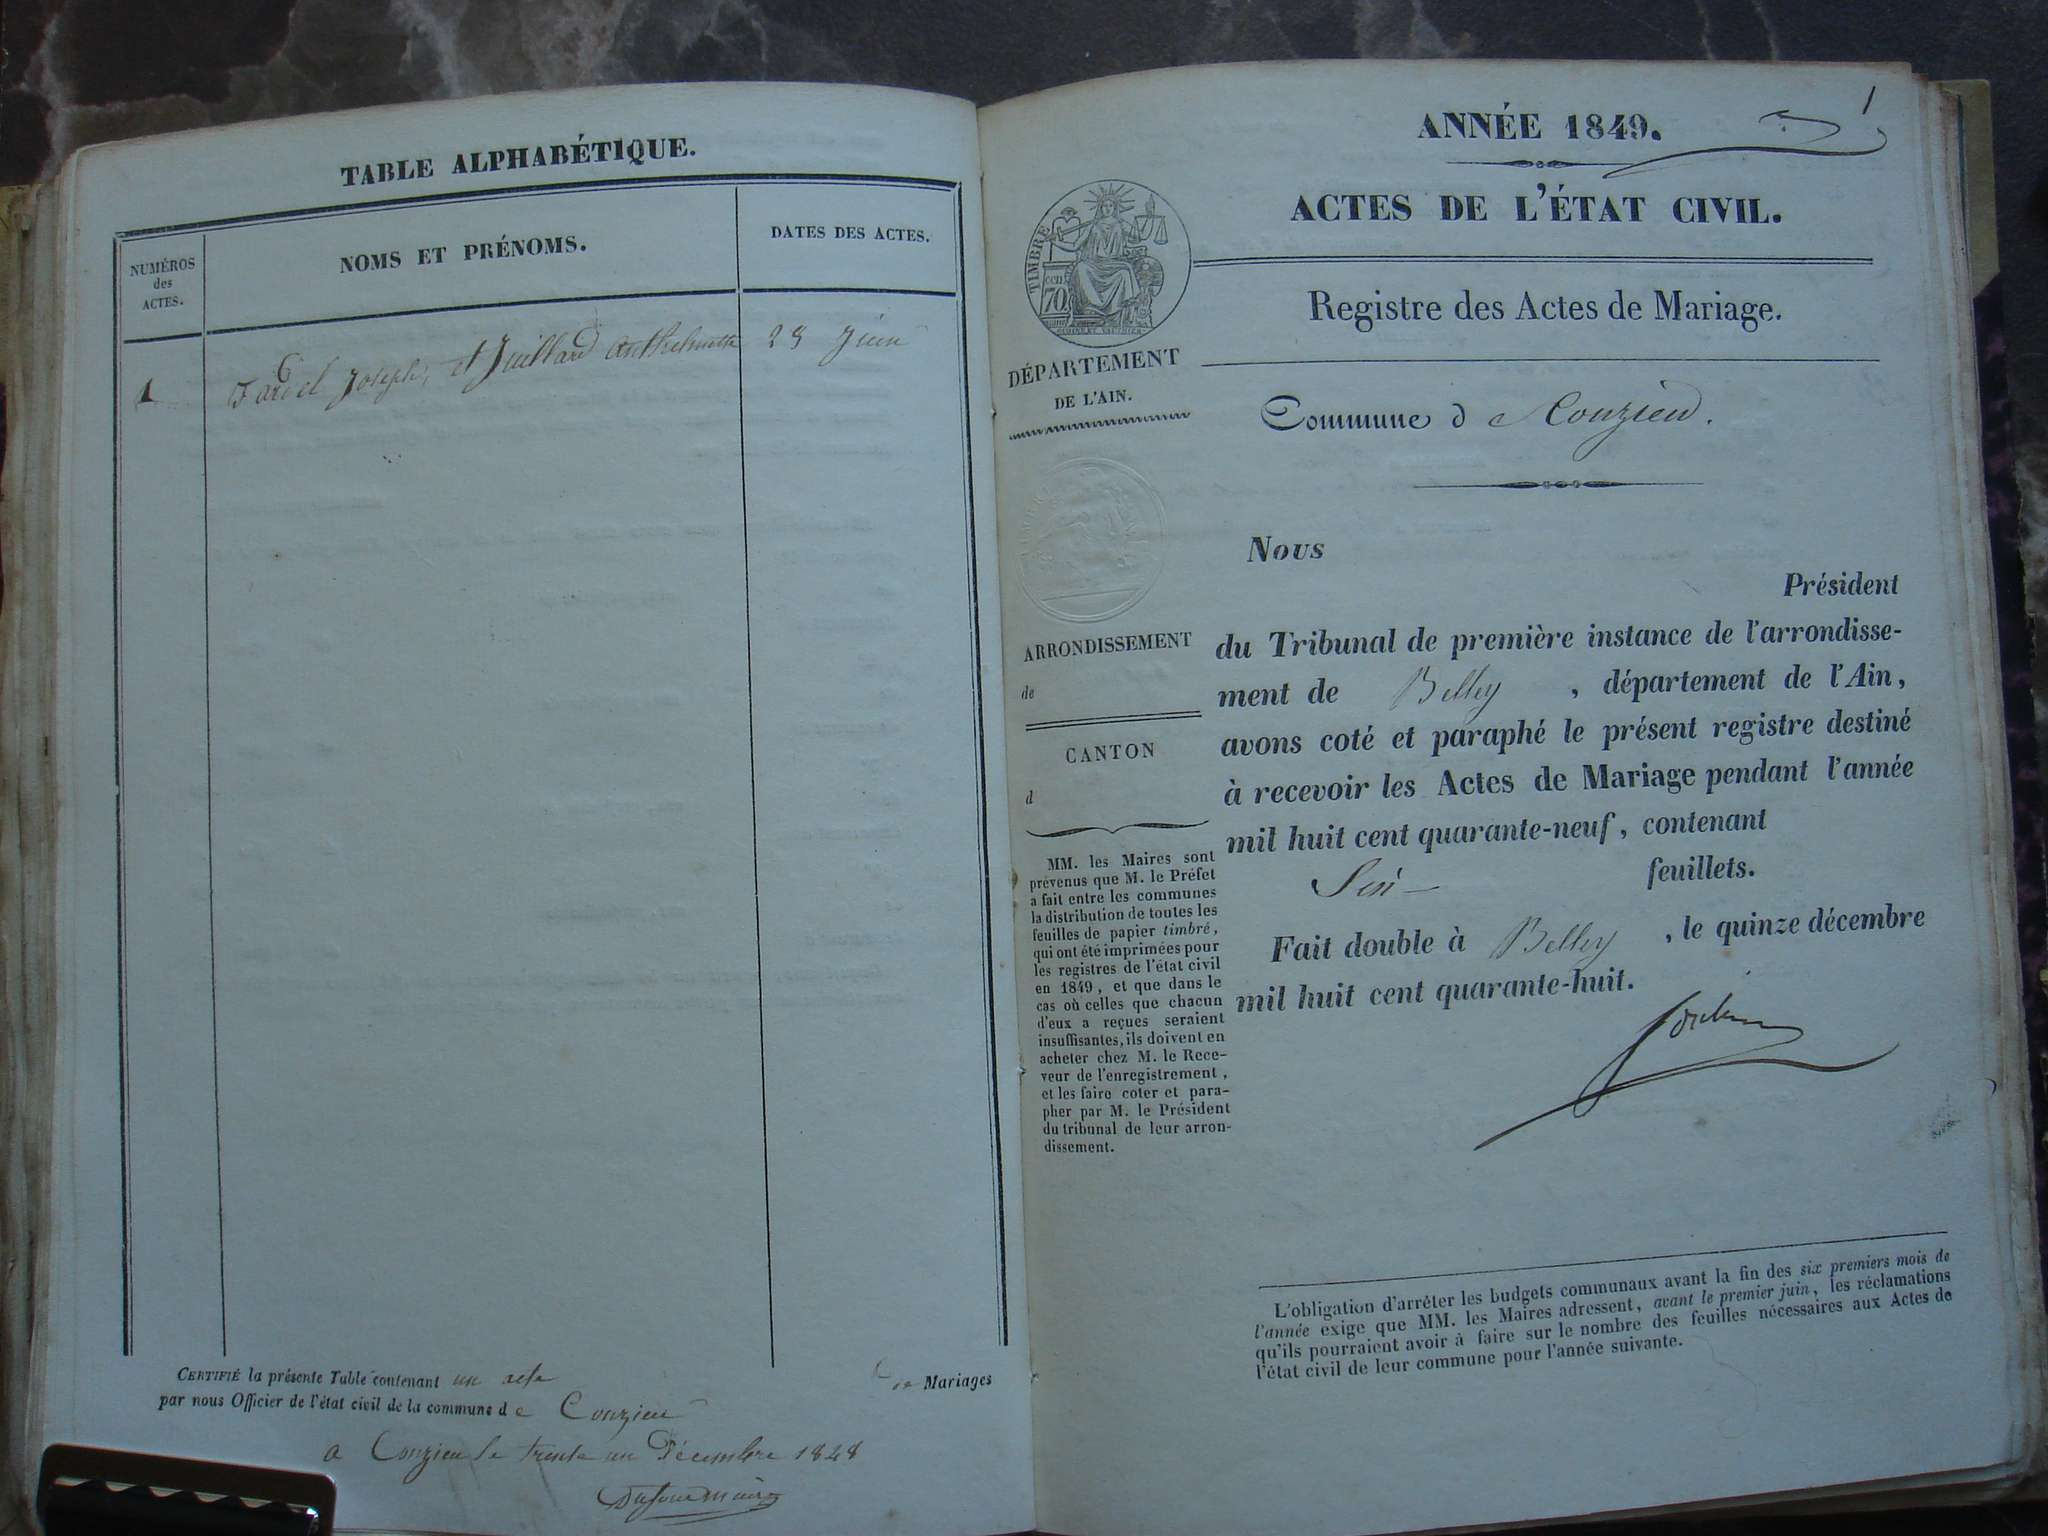 TABLE ALPHABÉTIQUE.
NUMÉROS
des
ACTES.
NOMS ET PRÉNOMS.
DATES DES ACTES.
1 Joseph, et Juillard Anthelmette 23 Juin
CERTIFIÉ la présente Table contenant un acte de Mariages
par nous Officier de l'état civil de la commune de Conzieu
a Conzieu le trente un Décembre 1848
Dufour maire
1
ANNÉE 1849.
ACTES DE L'ÉTAT CIVIL.
Registre des Actes de Mariage.
TIMBRE
cen
70
DÉPARTEMENT
DE L'AIN.
Commune d Conzieu.
Nous
Président
du Tribunal de première instance de l'arrondisse-
ment de Belley, département de l'Ain,
avons coté et paraphé le présent registre destiné
à recevoir les Actes de Mariage pendant l'année
mil huit cent quarante-neuf, contenant
Six feuillets.
Fait double à Belley, le quinze décembre
mil huit cent quarante-huit.
ARRONDISSEMENT
de
CANTON
d
MM. les Maires sont
prévenus que M. le Préfet
a fait entre les communes
la distribution de toutes les
feuilles de papier timbré,
qui ont été imprimées pour
les registres de l'état civil
en 1849, et que dans le
cas où celles que chacun
d'eux a reçues seraient
insuffisantes, ils doivent en
acheter chez M. le Rece-
veur de l'enregistrement,
et les faire coter et para-
pher par M. le Président
du tribunal de leur arron-
dissement.
L'obligation d'arrêter les budgets communaux avant la fin des six premiers mois de
l'année exige que MM. les Maires adressent, avant le premier juin, les réclamations
qu'ils pourraient avoir à faire sur le nombre des feuilles nécessaires aux Actes de
l'état civil de leur commune pour l'année suivante.